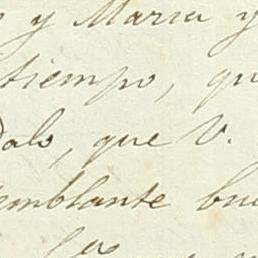 y Maria y
tiempo, qu
dalo, que V.
emblante bu